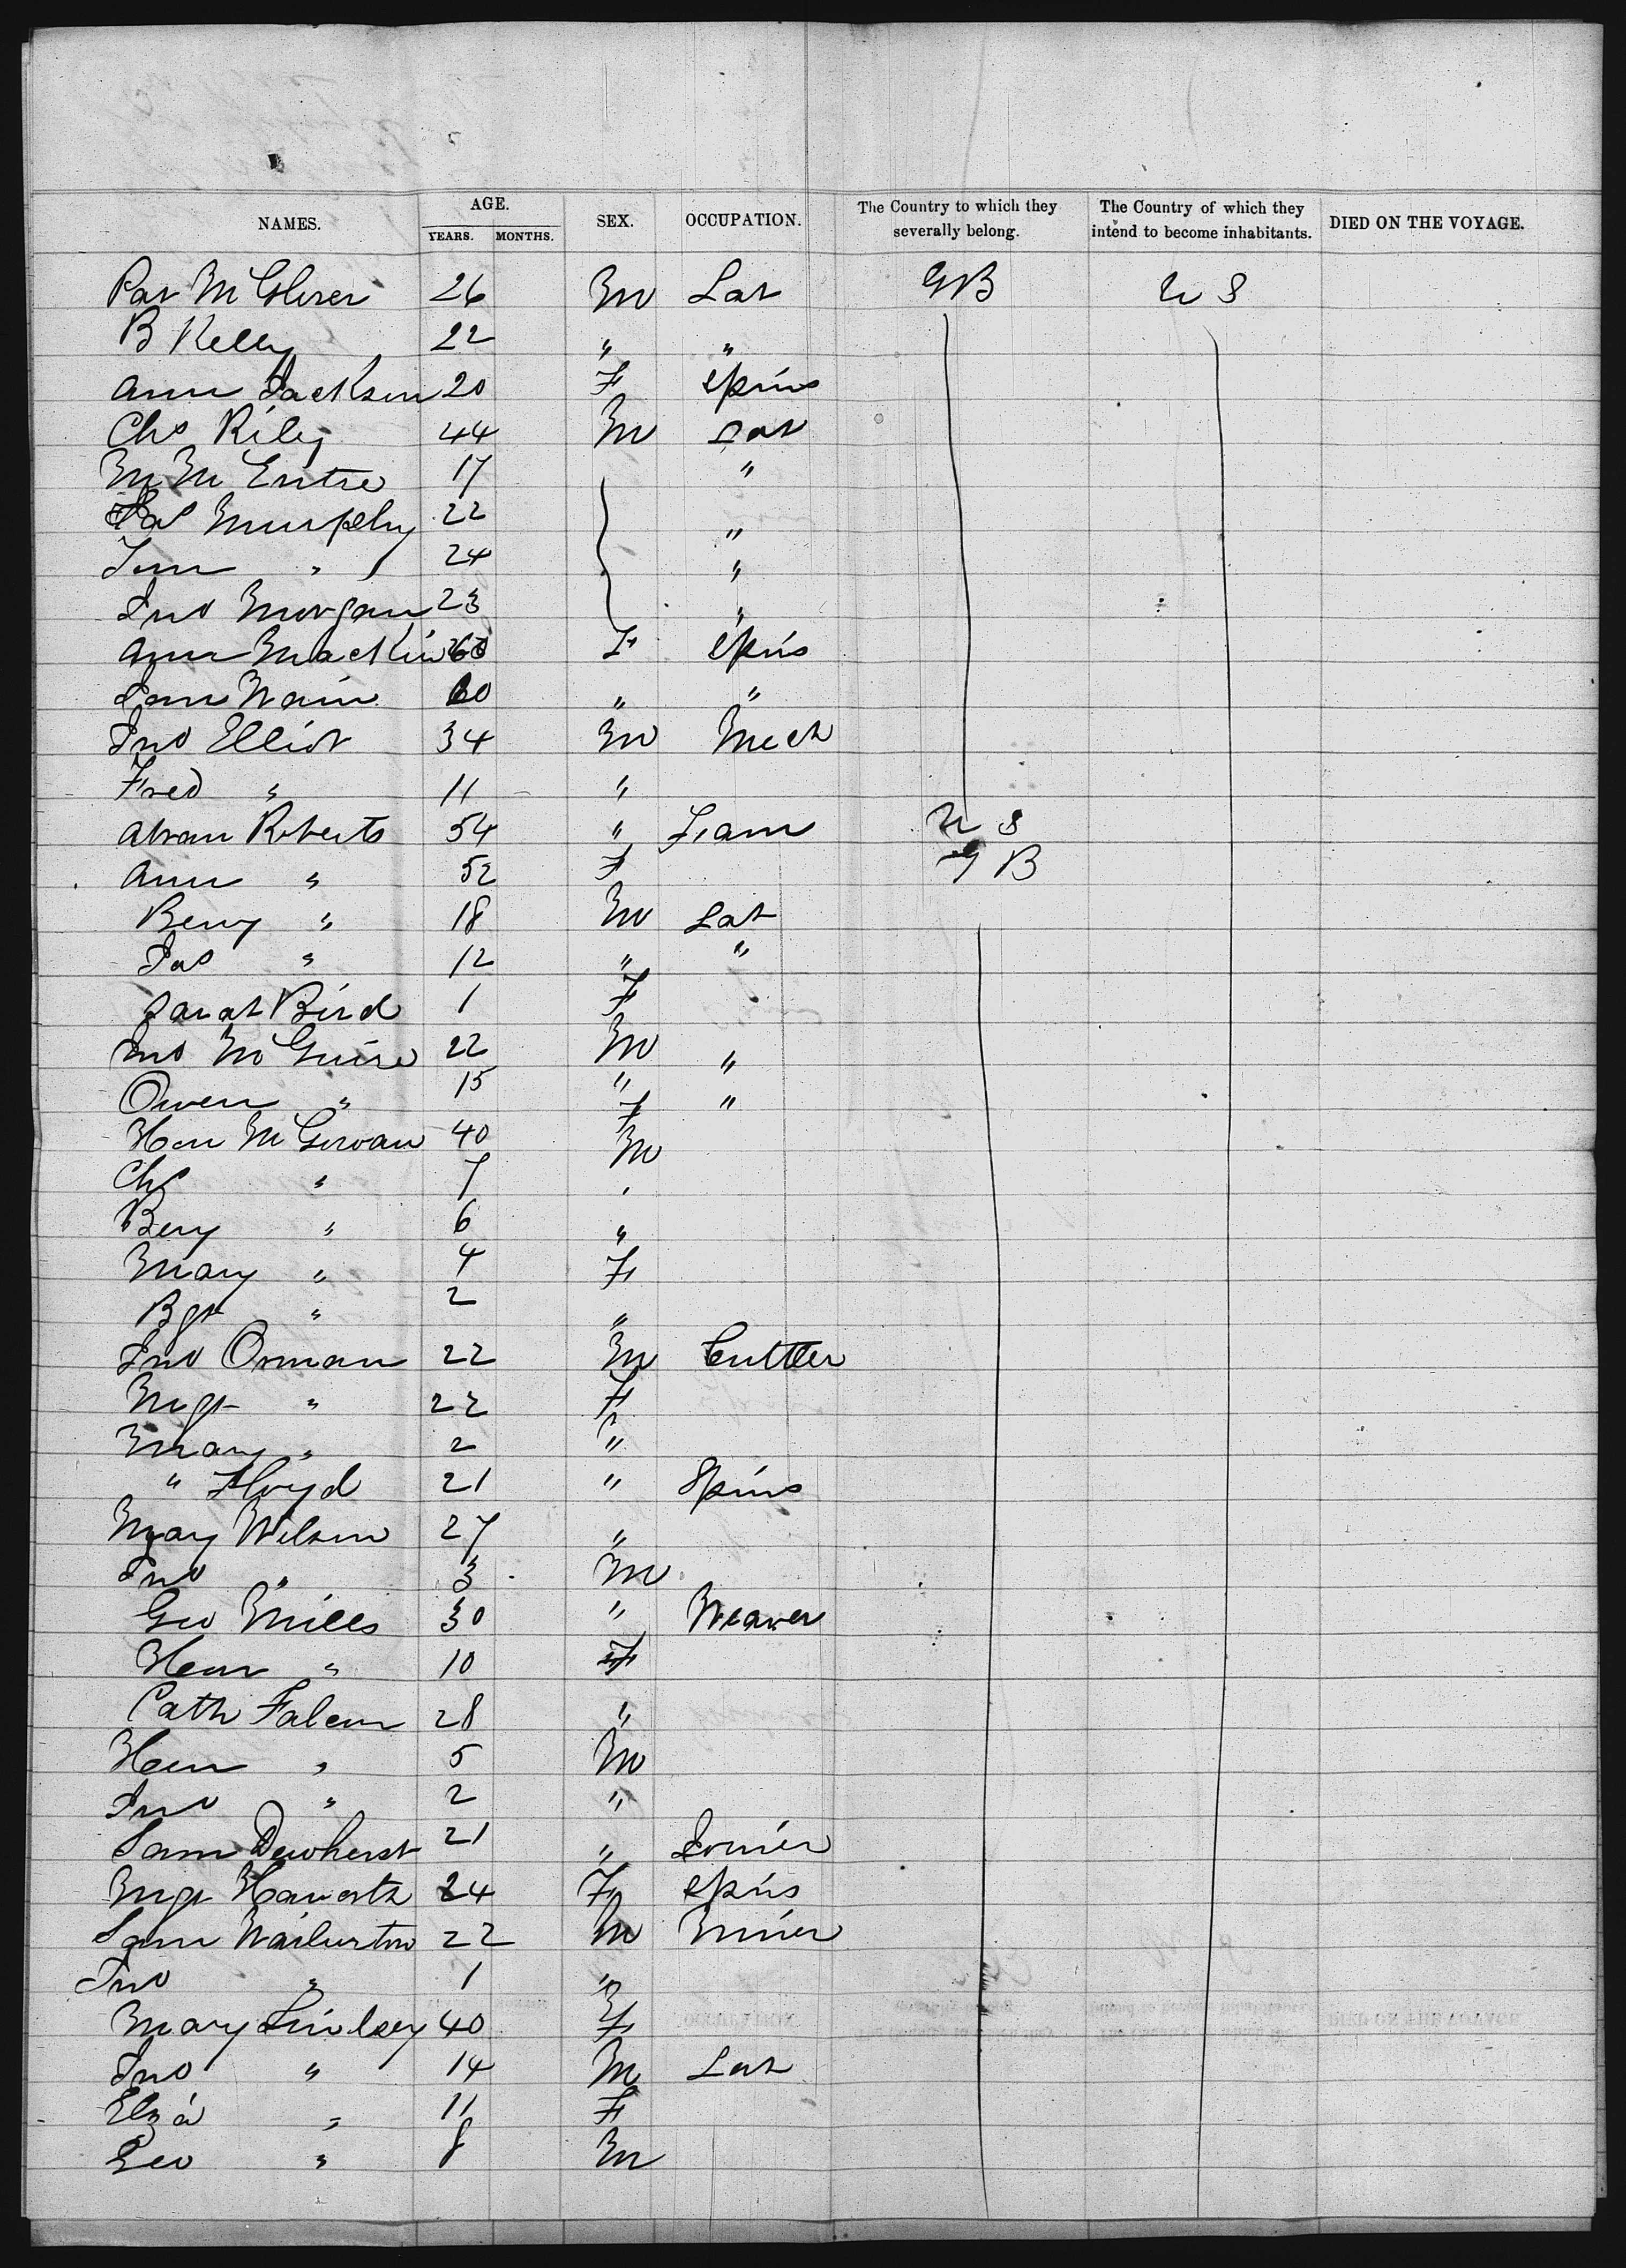 NAMES. AGE. YEARS. MONTHS. SEX. OCCUPATION. The Country to which they severally belong. The Country of which they intend to become inhabitants. DIED ON THE VOYAGE.
Pat 26 M Lab GB U S
B Kelly 22 " "
Ann Jackson 20 F Spins
Chs Riley 44 M Lab
M Mc Entre 17 "
Pat Murphy 22 "
Tom " 24 "
Jno Morgan 23 "
Ann Mackin F Spins
Wain 60 " "
Jno Elliot 34 M Mech
Fred " 11 "
Abram Roberts 54 " U S
Ann " 52 F G B
Benj " 18 M Lab
Jas " 12 " "
Sarah Bird 1 F
Jno Mc Guire 22 M "
Owen " 15 " "
Han Mc Gowan 40 F
Chs " 7 M
Benj " 6 "
Mary " 4 F
Bgt " 2 "
Jno Orman 22 M Cutter
Mgt " 22 F
Mary " 2 "
" Floyd 21 " Spins
Mary Wilson 27 "
Jno " 3 M
Geo Mills 30 " Weaver
Han " 10 F
Cath 28 "
Hen " 5 M
Jno " 2 "
Sam Dewherst 21 " Joiner
Mgt Haworth 24 F Spins
Sam Warburton 22 M Miner
Jno " 1 "
Mary Lindsey 40 F
Jno " 14 M Lab
Elza " 11 F
Geo " 8 M